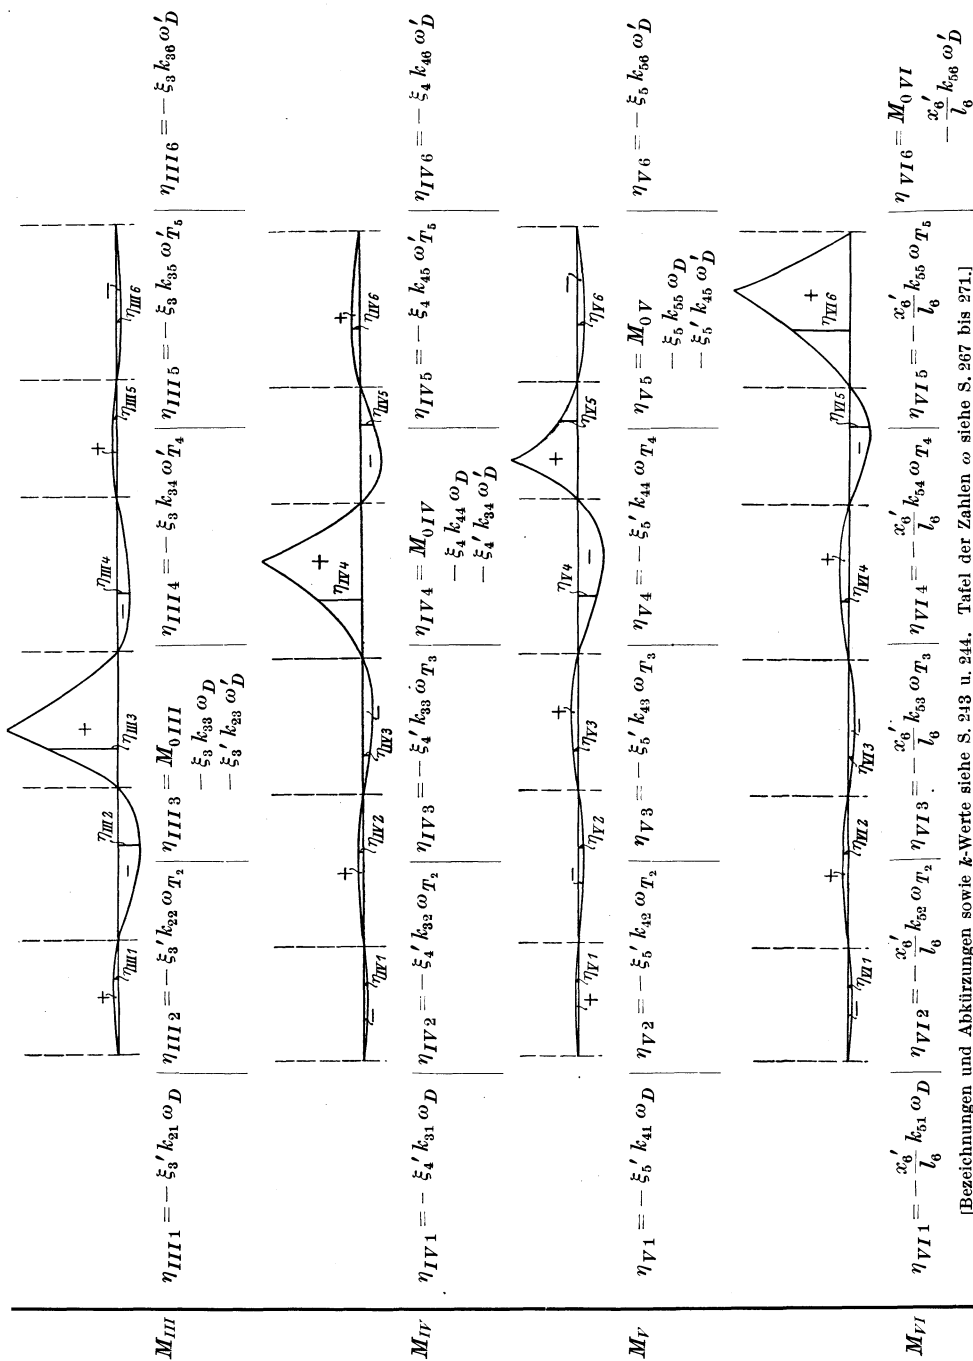 + η_{III1} − η_{III2} + η_{III3} − η_{III4} + η_{III5} − η_{III6}
M_{III}
η_{III 1} = − ξ₃′ k₂₁ ω_D
η_{III 2} = − ξ₃′ k₂₂ ω_{T₂}
η_{III 3} = M_{0 III}
− ξ₃ k₃₃ ω_D
− ξ₃′ k₂₃ ω′_D
η_{III 4} = − ξ₃ k₃₄ ω′_{T₄}
η_{III 5} = − ξ₃ k₃₅ ω′_{T₅}
η_{III 6} = − ξ₃ k₃₆ ω′_D
− η_{IV1} + η_{IV2} − η_{IV3} + η_{IV4} − η_{IV5} + η_{IV6}
M_{IV}
η_{IV 1} = − ξ₄′ k₃₁ ω_D
η_{IV 2} = − ξ₄′ k₃₂ ω_{T₂}
η_{IV 3} = − ξ₄′ k₃₃ ω_{T₃}
η_{IV 4} = M_{0 IV}
− ξ₄ k₄₄ ω_D
− ξ₄′ k₃₄ ω′_D
η_{IV 5} = − ξ₄ k₄₅ ω′_{T₅}
η_{IV 6} = − ξ₄ k₄₆ ω′_D
+ η_{V1} − η_{V2} + η_{V3} − η_{V4} + η_{V5} − η_{V6}
M_V
η_{V 1} = − ξ₅′ k₄₁ ω_D
η_{V 2} = − ξ₅′ k₄₂ ω_{T₂}
η_{V 3} = − ξ₅′ k₄₃ ω_{T₃}
η_{V 4} = − ξ₅′ k₄₄ ω_{T₄}
η_{V 5} = M_{0 V}
− ξ₅ k₅₅ ω_D
− ξ₅′ k₄₅ ω′_D
η_{V 6} = − ξ₅ k₅₆ ω′_D
− η_{VI1} + η_{VI2} − η_{VI3} + η_{VI4} − η_{VI5} + η_{VI6}
M_{VI}
η_{VI 1} = − x₆′/l₆ k₅₁ ω_D
η_{VI 2} = − x₆′/l₆ k₅₂ ω_{T₂}
η_{VI 3} = − x₆′/l₆ k₅₃ ω_{T₃}
η_{VI 4} = − x₆′/l₆ k₅₄ ω_{T₄}
η_{VI 5} = − x₆′/l₆ k₅₅ ω_{T₅}
η_{VI 6} = M_{0 VI}
− x₆′/l₆ k₅₆ ω′_D
[Bezeichnungen und Abkürzungen sowie k-Werte siehe S. 243 u. 244. Tafel der Zahlen ω siehe S. 267 bis 271.]